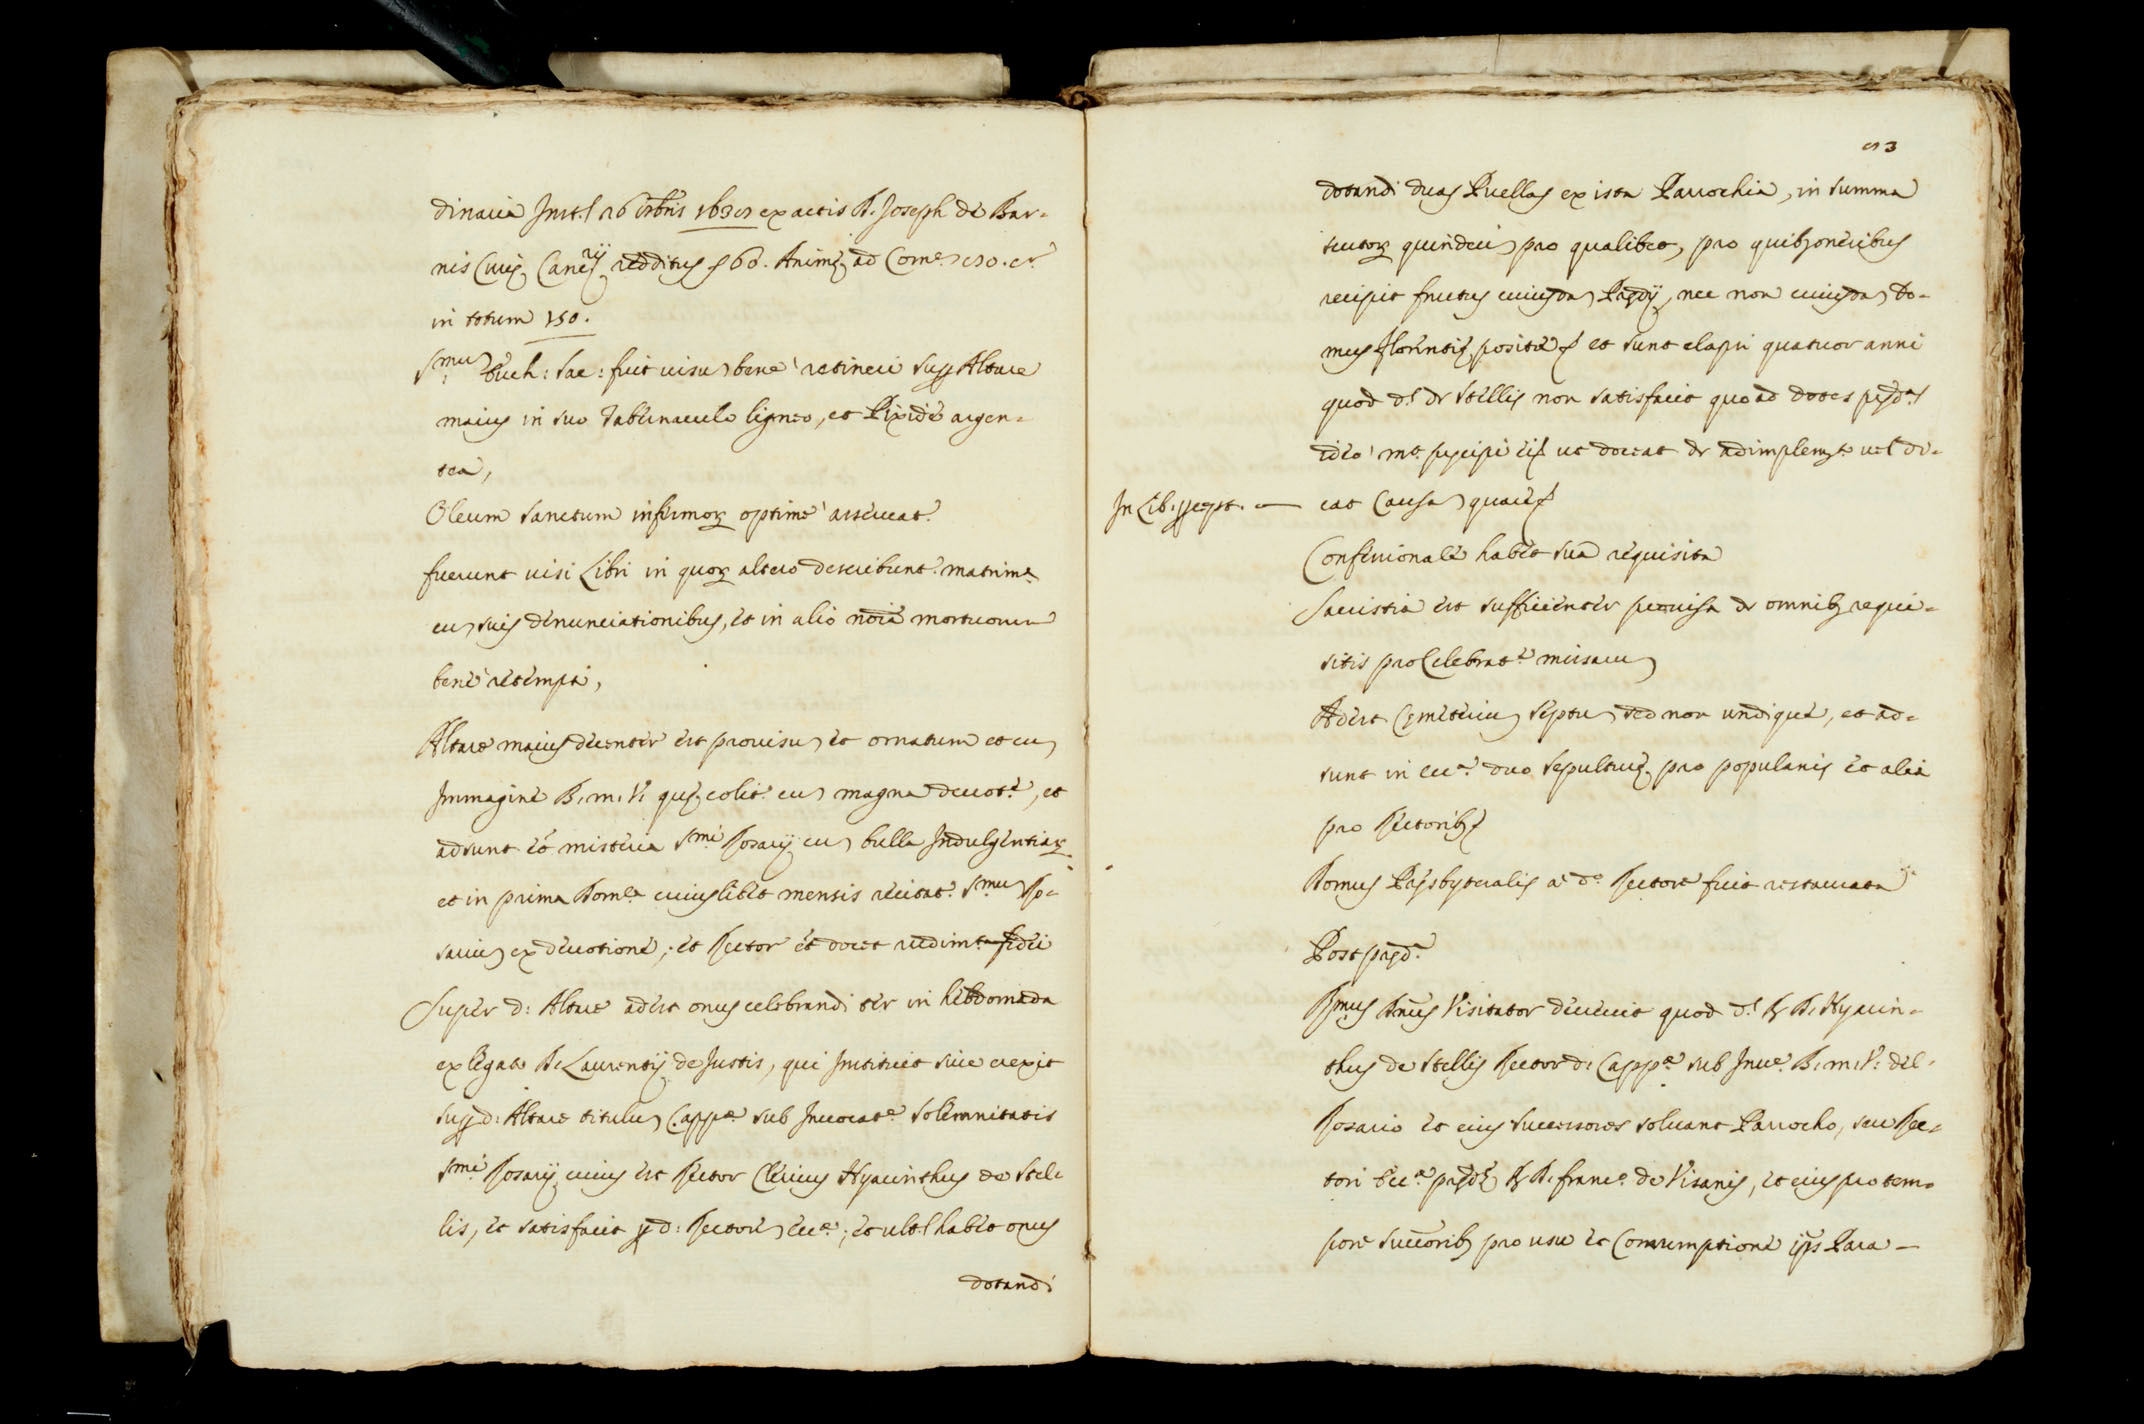 dinaria Inst.ˢ 26 8bris 1639 ex actis D. Joseph de Bar-
nis Curię Canerij redditus ſ 60. Animę ad Com.e 90. et
in totum 150.
Smu Euch: Sac: fuit visu bene retineri supʳ Altare
maius in suo Tabernaculo ligneo, et Pixide argen-
tea,
Oleum sanctum infirmorꝫ optime asseruat.
fuerunt visi Libri in quorꝫ altero describunt. matrim.a
cu suis denunciationibus, et in alio noia mortuorum
bene retempti,
Altare maius decenter est provisu et ornatum et cu
Immagine B. m. V. quę colit. cu magna devot.e, et
adsunt et misteria Smi Rosarij cu bulla Indulgentiarꝫ
et in prima Dom.ca cuiuslibet mensis recitat. Smu Ro-
sariu ex devotione; et Rector et docet rudim.ta fidei
Super d: Altare adest onus celebrandi ter in hebdomada
ex legato D. Laurentij de Justis, qui Instituit sive erexit
supʳ d: Altare titulu Capp.e sub Invocat.e solemnitatis
Smi Rosarij cuius est Rector Clericus Hyacinthus de Stel-
lis, et satisfacit ꝑ d: Rectore ecc.e; et ult.ˢ habet onus
dotandi
93
dotandi duas Puellas ex ista Parrochia, in summa
scutorꝫ quindeci pro qualibet, pro quibꝫ oneribus
recipit fructus cuiusda Prędij, nec non cuiusda Do-
mus Florentię positę et sunt elapsi quatuor anni
quod d.ˢ de Stellis non satisfacit quoad dotes prędᵃˢ
ideo m.t pręcipi ei ut doceat de adimplem.to vel di-
In Lib. pręcept. — cat Causa quare
Confessionale habet sua requisita
Sacristia est sufficienter provisa de omnibꝫ requi-
sitis pro Celebrat.e missaru
Adest Cęmeteriu septu sed non undique, et ad-
sunt in ecc.a duo sepulturę pro popularis et alia
pro Rectoribꝫ
Domus Pręsbyteralis a d.o Rectore fuit restaurata
Post pręd.a
Rmus Dnus Visitator decrevit quod d.ˢ R. D. Hyacin-
thus de Stellis Rector d: Capp.e sub Inv.e B. m. V: del
Rosario et eius successores solvant Parrocho, seu Rec-
tori Ecc.e prędę R. D. Franc.o de Visanis, et eius pro tem-
pore succoribꝫ pro usu et Consumptione ips Para-